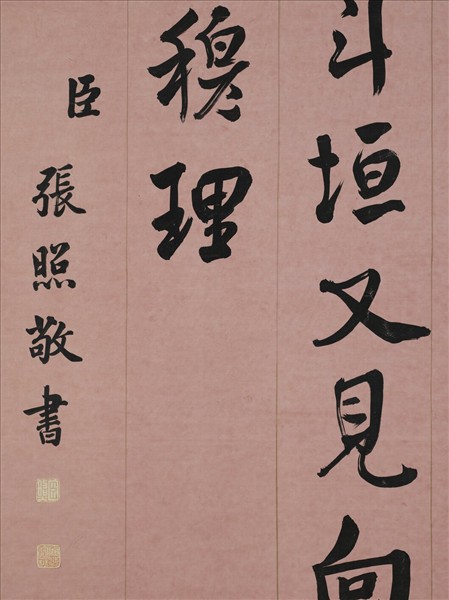 斗垣又見向
穆理
臣張照敬書